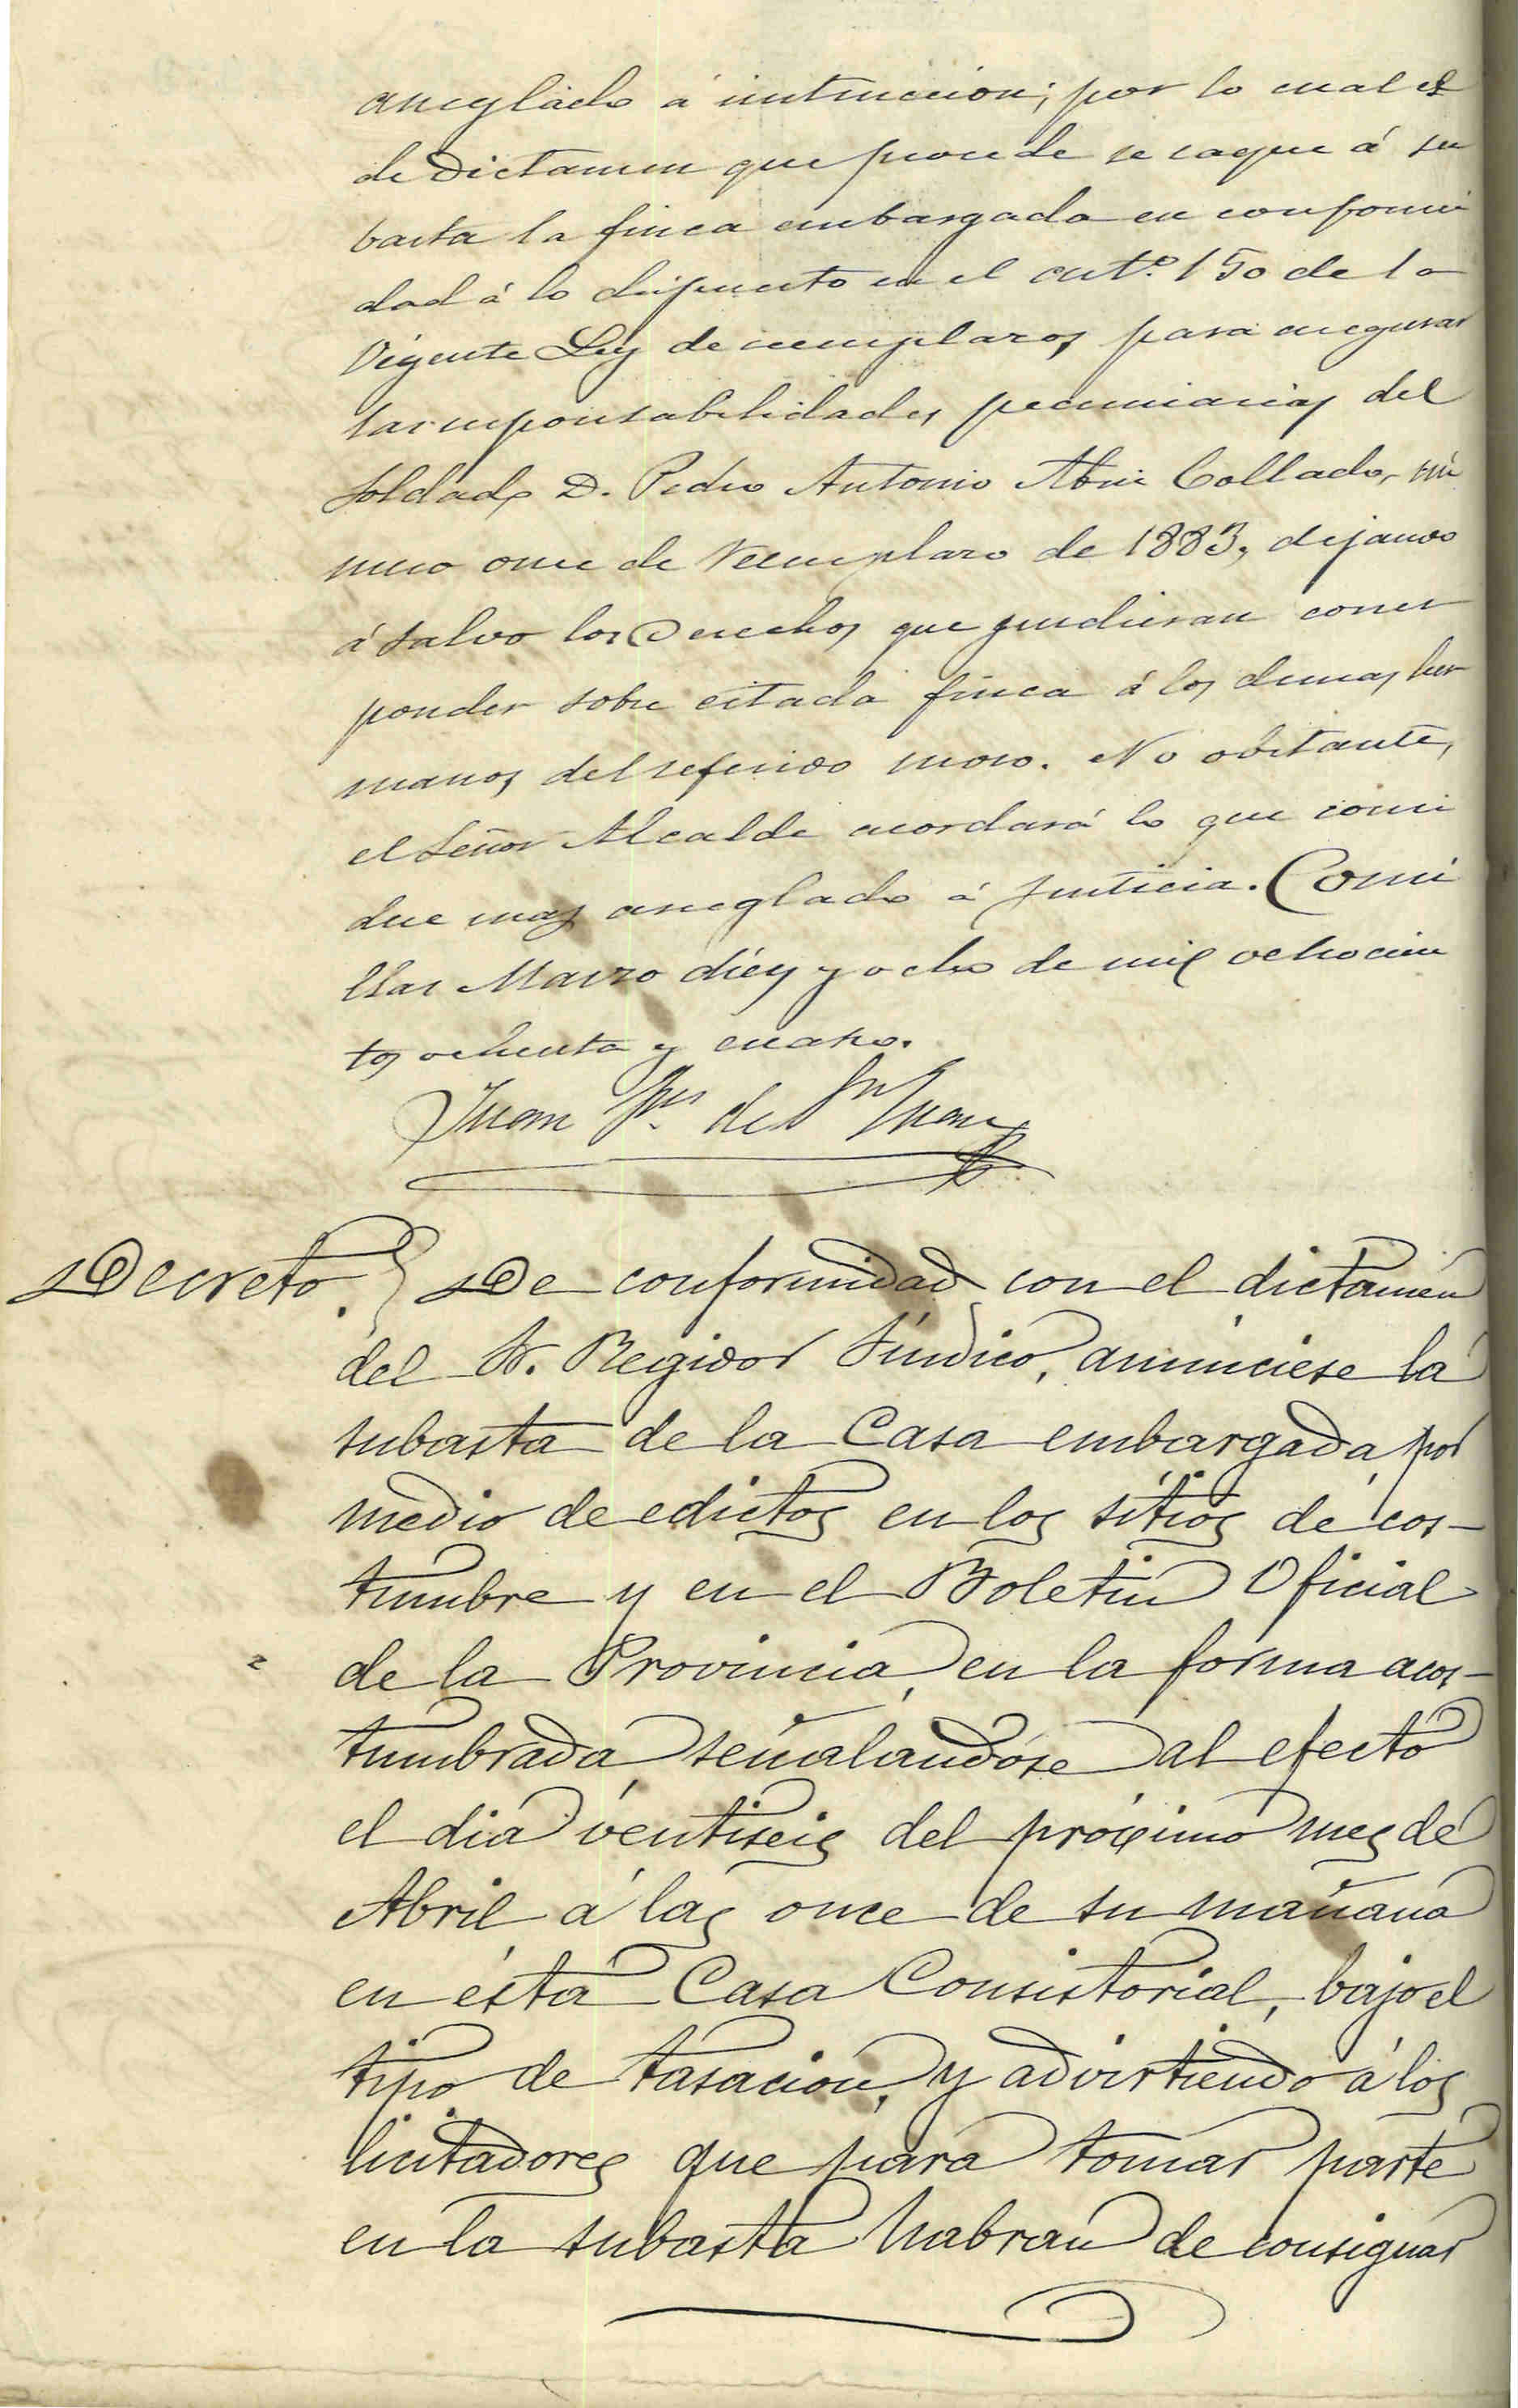 arreglado á instruccion; por lo cual es
de Dictamen que procede se saque á su
basta la finca embargada en conformi
dad á lo dispuesto en el art.º 150 de la
Vigente Ley de reemplazos, para asegurar
las responsabilidades pecuniarias del
soldado D. Pedro Antonio Collado, nú
mero once de Reemplazo de 1883, dejando
á salvo los Derechos que pudieran corres
ponder sobre citada finca á los demas her
manos del referido mozo. No obstante,
el Señor Alcalde acordará lo que consi
dere mas arreglado á justicia. Comi
llas Marzo diez y ocho de mil ochocien
tos ochenta y cuatro.
Juan de Sn Juan
Decreto. De conformidad con el dictamen
del Sr. Regidor Síndico, anúnciese la
subasta de la Casa embargada, por
medio de edictos en los sitios de cos-
tumbre y en el Boletin Oficial
de la Provincia, en la forma acos-
tumbrada, señalandose al efecto
el dia ventiseis del próximo mes de
Abril, á las once de su mañana
en ésta Casa Consistorial, bajo el
tipo de tasacion, y advirtiendo á los
licitadores que para tomar parte
en la subasta habran de consignar